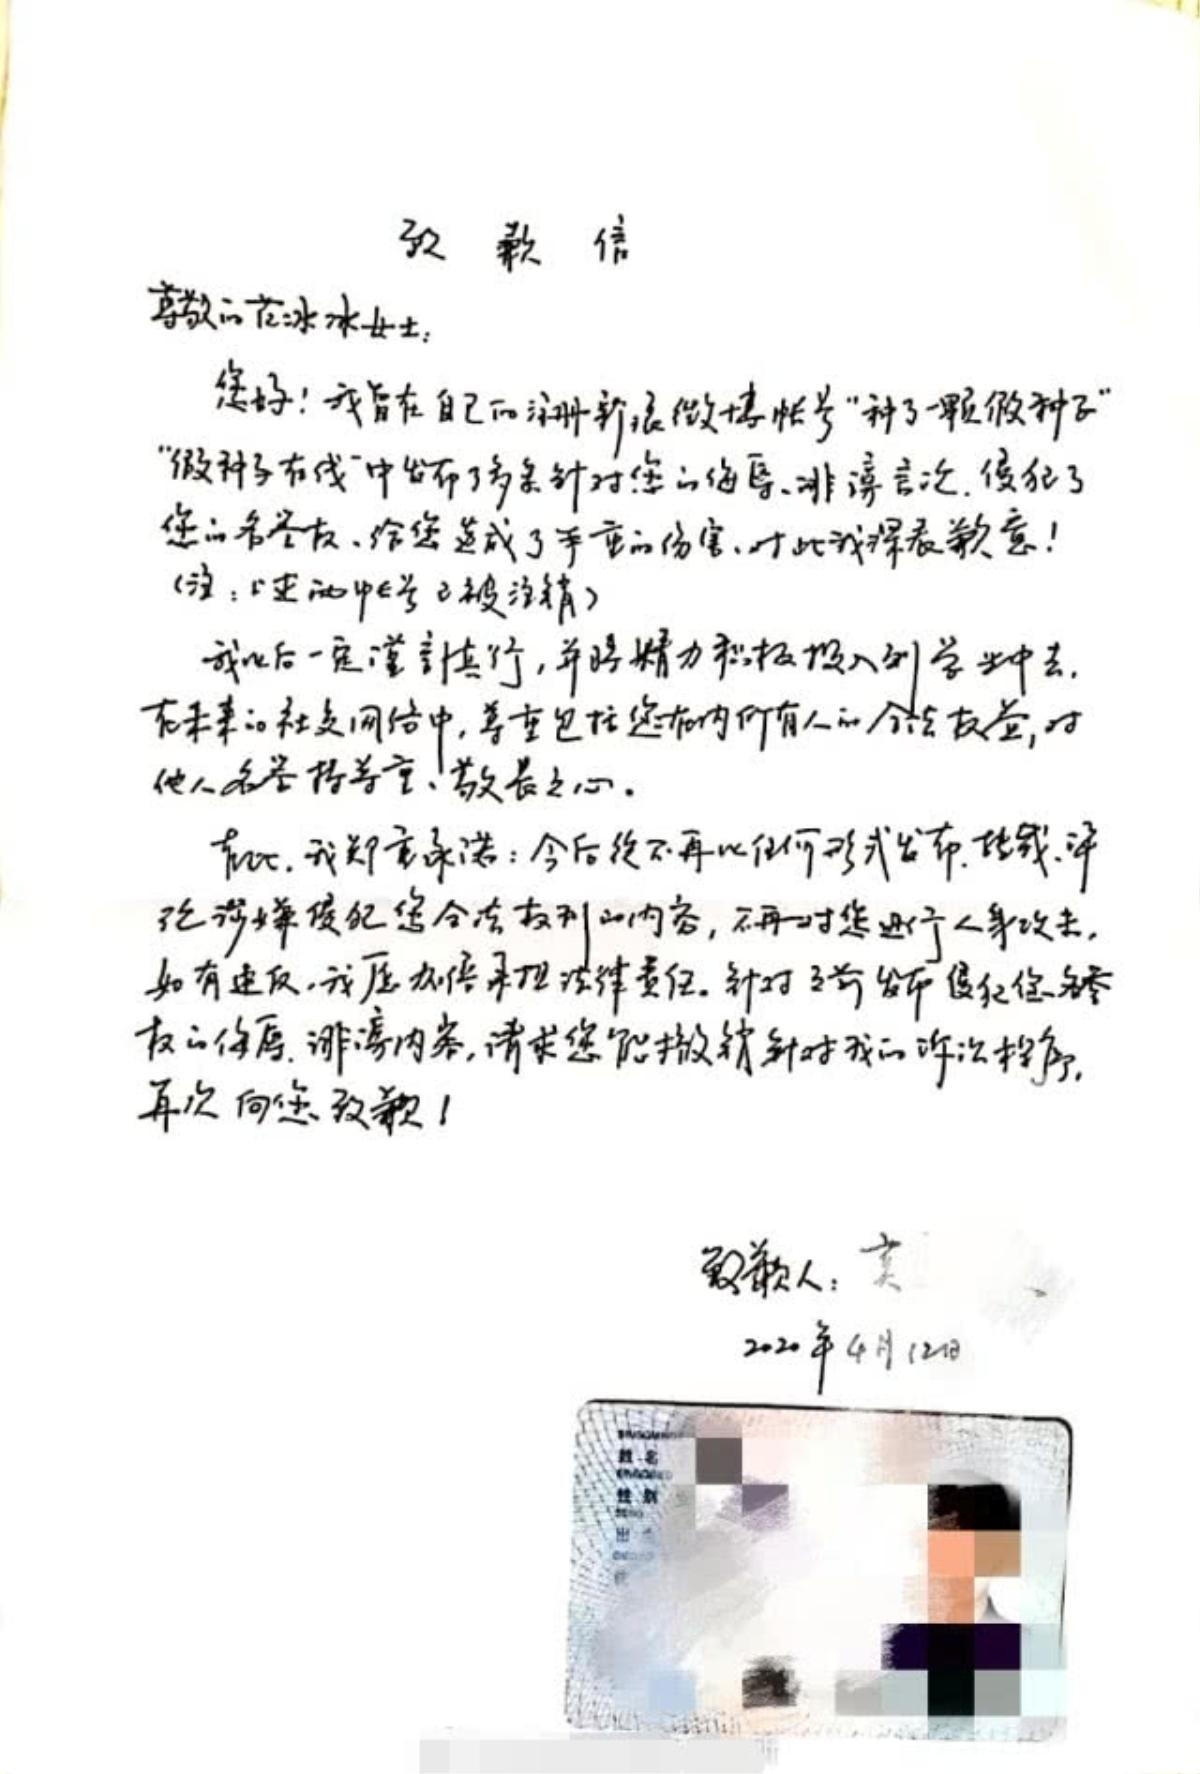 致歉信
尊敬的范冰冰女士:
您好!我曾在自己的注册新浪微博帐号"种了一颗假种子"
"假种子在线"中发布了多条针对您的侮辱、诽谤言次,侵犯了
您的名誉权、给您造成了严重的伤害、对此我深表歉意!
(注:上述两帐号已被注销)
我以后一定谨言慎行,并将精力积极投入到学业中去,
在未来的社交网络中,尊重包括您在内所有人的合法权益,对
他人名誉持尊重、敬畏之心。
在此,我郑重承诺:今后绝不再以任何形式发布、转载、评
论涉嫌侵犯您合法权利的内容,不再对您进行人身攻击,
如有违反,我愿加倍承担法律责任。针对之前发布侵犯您名誉
权的侮辱、诽谤内容,请求您能撤销针对我的诉讼程序,
再次向您致歉!
致歉人:
2020年4月12日
姓名
性别
出